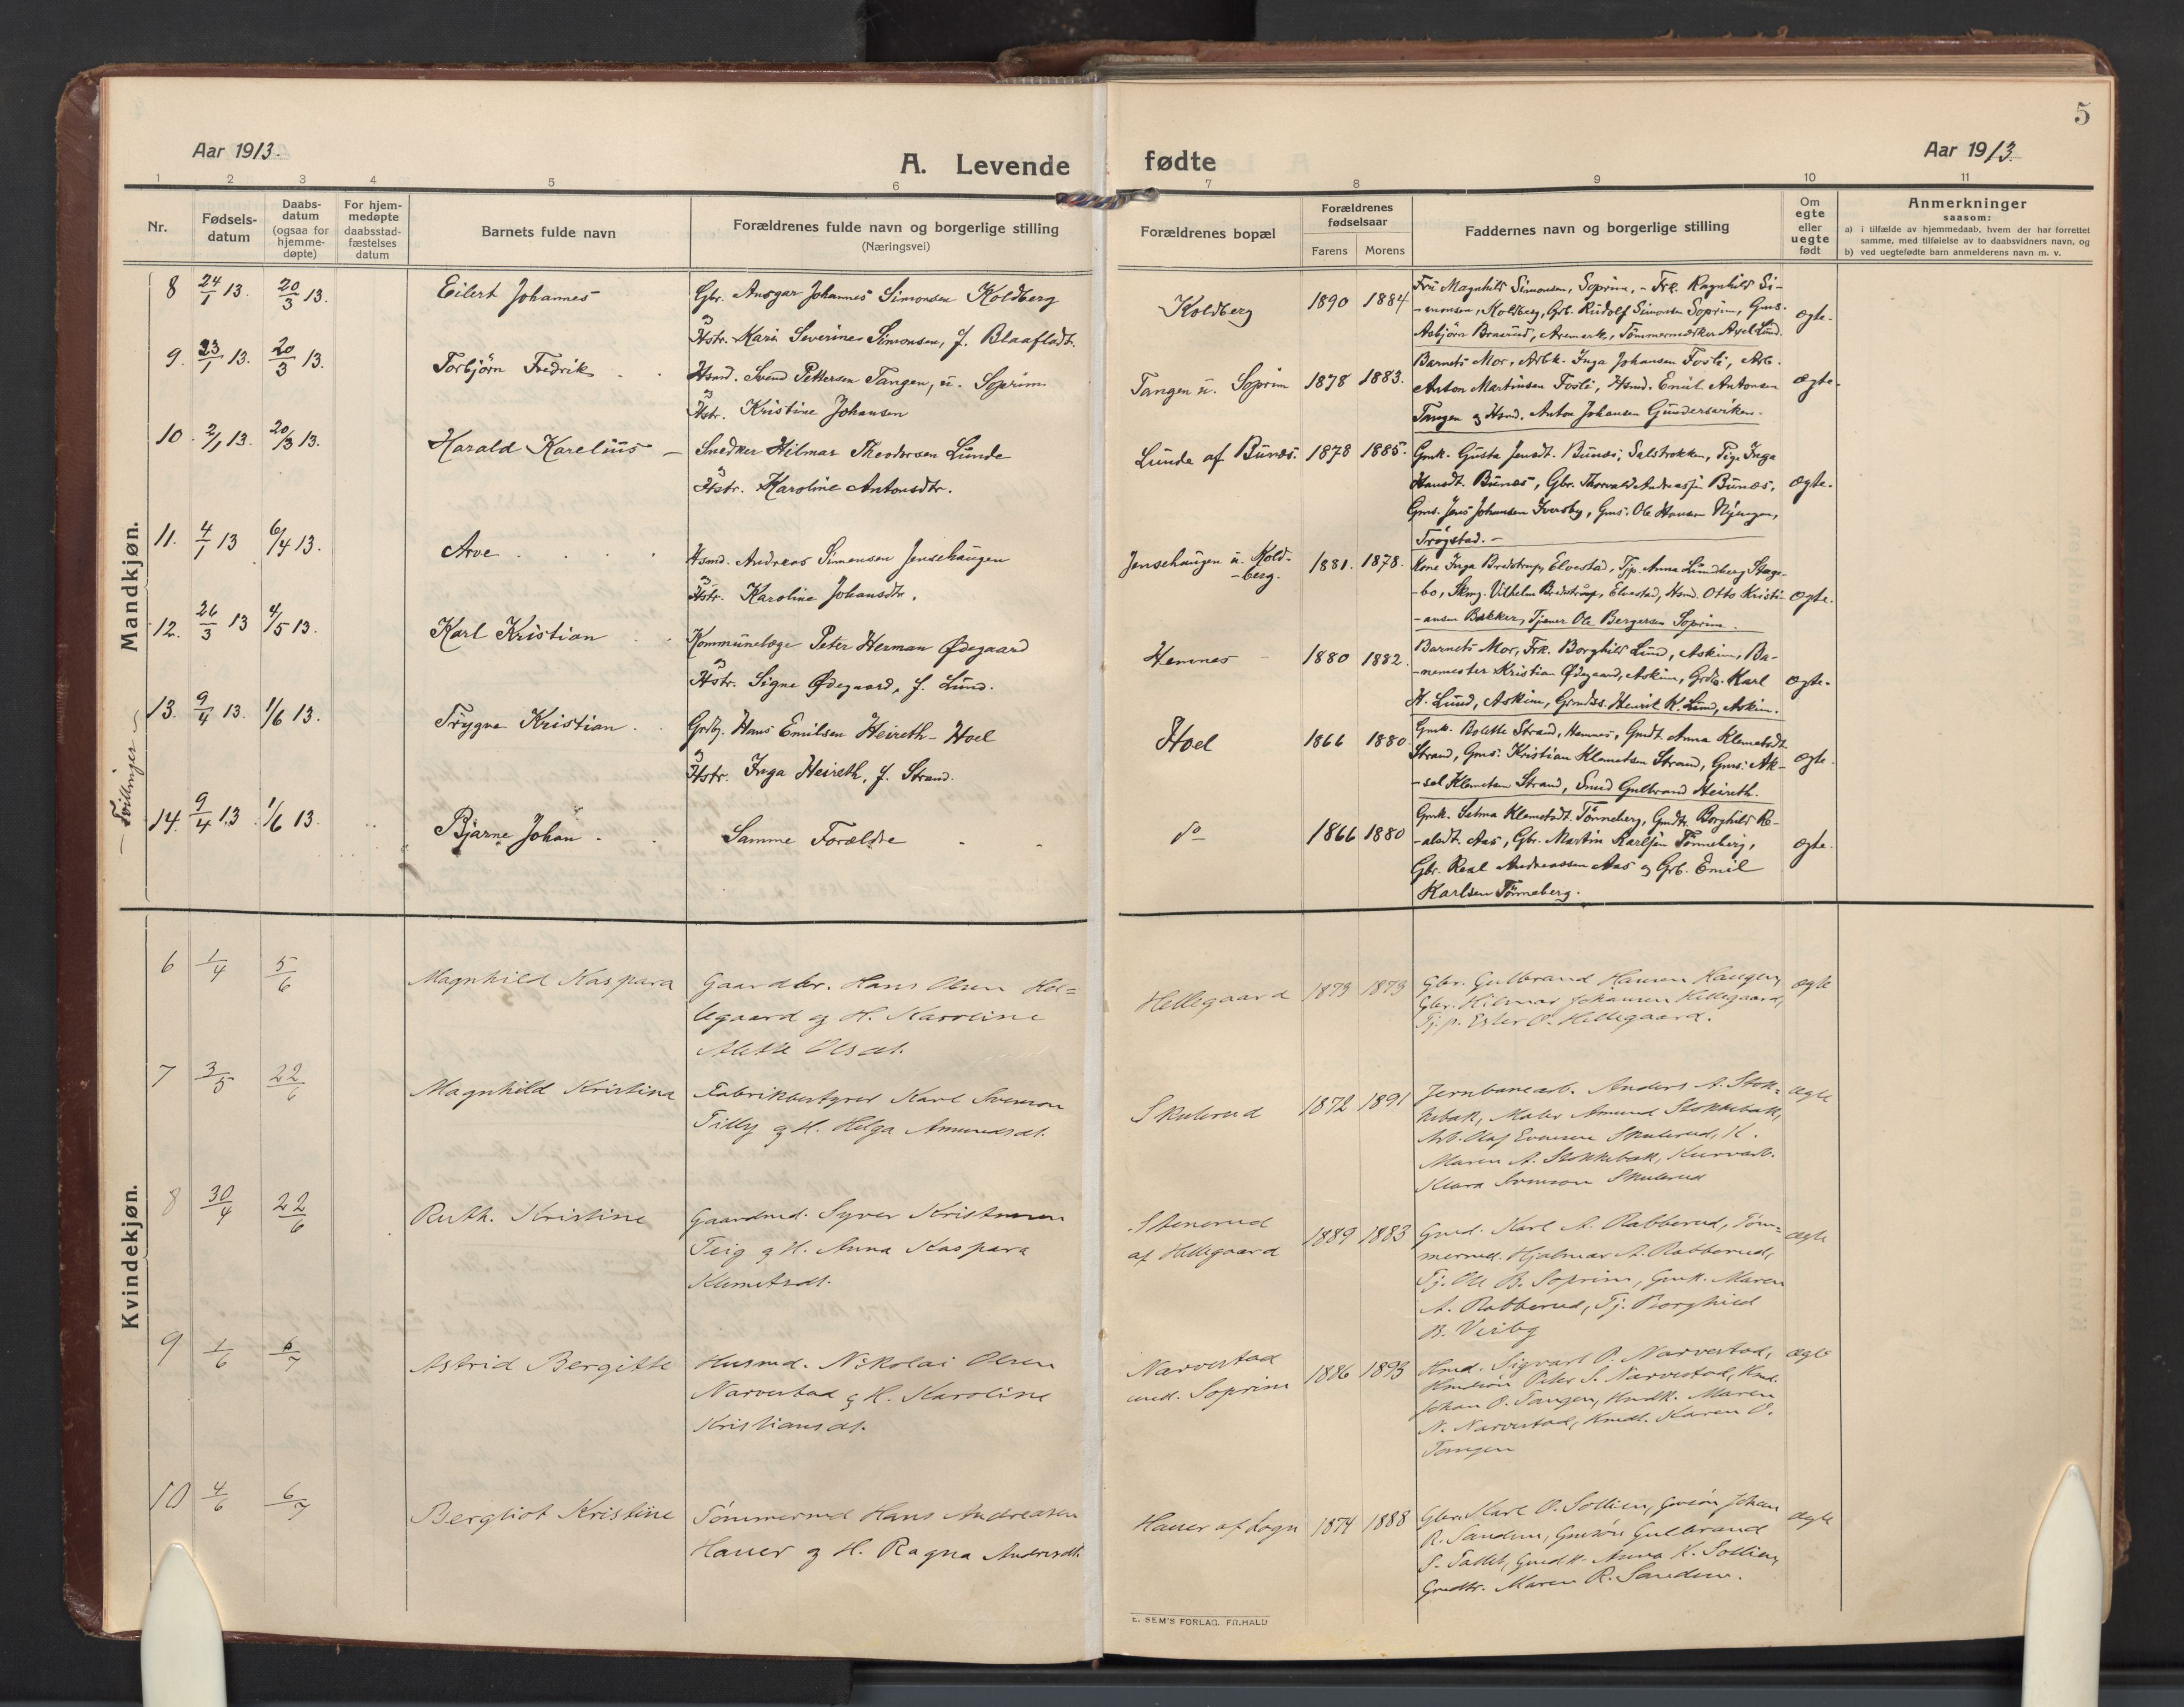 5
Aar 1913.
A. Levende
fødte
Aar 1913.
1 2 3 4 5 6 7 8 9 10 11
Nr.
Fødsels-
datum
Daabs-
datum
(ogsaa for
hjemme-
døpte)
For hjem-
medøpte
daabsstad-
fæstelses
datum
Barnets fulde navn
Forældrenes fulde navn og borgerlige stilling
(Næringsvei)
Forældrenes bopæl
Forældrenes
fødselsaar
Farens Morens
Faddernes navn og borgerlige stilling
Om
egte
eller
uegte
født
Anmerkninger
saasom:
a) i tilfælde av hjemmedaab, hvem der har forrettet
samme, med tilføielse av to daabsvidners navn, og
b) ved uegtefødte barn anmelderens navn m. v.
Mandkjøn.
8 24/1 13. 20/3 13. Eilert Johannes
Gbr. Ansgar Johannes Simonsen Koldberg
og
Hstr. Kari Severine Simonsen, f. Blaafladt.
Koldberg 1890 1884
Fru Magnhild Simonsen, Soprim, - Frk. Ragnhild Si-
-monsen, Koldberg, Grb. Rudolf Simonsen Soprim, Gms.
Asbjörn Braarud, Aremark, Tömmermærker Axel Lund.
ægte.
9. 23/1 13. 20/3 13. Torbjörn Fredrik
Hsmd. Svend Pettersen Tangen, u. Soprim
og
Hstr. Kristine Johansen
Tangen u. Soprim 1878 1883.
Barnets Mor, Arbk. Inga Johansen Fosli, Arb.
Anton Martinsen Fosli, Hsmd. Emil Antonsen
Tangen og Hsmd. Anton Johansen Gundersviken.
ægte.
10. 2/1 13. 20/3 13. Harald Karelius
Snedker Hilmar Theodorsen Lunde
Hstr. Karoline Antonsdtr.
Lunde af Bunæs. 1878 1885.
Gmk. Gusta Jensdt. Bunæs, Salstrokken, Pige Inga
Hansdt. Bunæs, Gbr. Thorvald Andreassen Bunæs,
Gms. Jens Johansen Iversby, Gms. Ole Hansen Nyengen,
Trøgstad. -
ægte.
11. 4/1 13 6/4 13. Arve
Hsmd. Andreas Simonsen Jensehaugen
og
Hstr. Karoline Johansdtr.
Jensehaugen u. Kold-
-berg. 1881. 1878.
Kone Inga Bredstrup, Elvestad, Tjp. Anna Lundberg Stegs-
-bo, Skmg. Vilhelm Bredstrup, Elvestad, Hsmd. Otto Kristi-
-ansen Bakker, Tjener Ole Bergersen Soprim.
ægte.
12. 26/3 13 4/5 13. Karl Kristian
Kommunelæge Peter Herman Ødegaard
og
Hstr. Signe Ødegaard, f. Lund.
Hemnes 1880 1882.
Barnets Mor, Frk. Borghild Lund, Askim, Ba-
-nemester Kristian Ødegaard, Askim, Grdb. Karl
H. Lund, Askim, Grmds. Henrik K. Lund, Askim.
ægte.
Tvillinger
13. 9/4 13. 1/6 13. Trygve Kristian
Grdb. Hans Emilsen Heireth-Hoel
og
Hstr. Inga Heireth, f. Strand.
Hoel 1866 1880
Gmk. Bolette Strand, Hemnes, Gmdt. Anna Klemetsdt.
Strand, Gms. Kristian Klemetsen Strand, Gms. Ak-
-sel Klemetsen Strand, Smed Gulbrand Heireth.
ægte.
14. 9/4 13 1/6 13. Bjarne Johan
Samme Forældre
do 1866 1880
Gmk. Selma Klemetsdt. Tønneberg, Gmdtr. Borghild Re-
-alsdt. Aas, Gbr. Martin Karlsen Tønneberg,
Gbr. Real Andreassen Aas og Grb. Emil
Karlsen Tønneberg.
ægte.
Kvindekjøn.
6 1/4 5/6 Magnhild Kaspara
Gaardbr. Hans Olsen Hel=
legaard og H. Karoline
Alette Olsdt.
Hellegaard 1873 1873
Gbr. Gulbrand Hansen Haugen,
Gbr. Hilmar Johansen Hellegaard,
Tj.p. Ester O. Hellegaard.
ægte
7 3/5 22/6 Magnhild Kristina
Fabrikbestyrer Karl Svenson
Tilly og H. Helga Amundsdt.
Skulerud 1872 1891
Jernbanearb. Anders A. Stok=
kebak, Maler Amund Stokkebak,
Arb. Olaf Evensen Skulerud, K.
Maren A. Stokkebak,
Klara Svenson Skulerud
ægte
8 30/4 22/6 Ruth Kristine
Gaardmd. Syver Kristensen
Teig og H. Anna Kaspara
Klemetsdt.
Stenerud
af Hellegaard 1889 1883
Gmd. Karl A. Rabberud, Töm=
mermd. Hjalmar A. Rabberud,
Tj. Ole B. Soprim, Gmk. Maren
A. Rabberud, Tj. Borghild
B. Visby
ægte
9 1/6 6/7 Astrid Bergitte
Husmd. Nikolai Olsen
Narvestad og H. Karoline
Kristiansdt.
Narvestad
und. Soprim 1886 1893
Hmd. Sigvart O. Narvestad,
Hmdsön Peter S. Narvestad, Hmd.
Johan O. Tangen, Hmdk. Maren
N. Narvestad, Hmdt. Karen O.
Tangen
ægte
10 4/6 6/7 Bergliot Kristine
Tømmermd Hans Andreasen
Hauer og H. Ragna Andersdt.
Hauer af Sogn 1874 1888
Gbr. Karl O. Sollien, Gmsøn Johan
R. Sandum, Gmsøn Gulbrand
S. Gmdk. Anna K. Sollien,
Gmdtr. Maren R. Sandum.
ægte
E. SEM'S FORLAG, FR.HALD